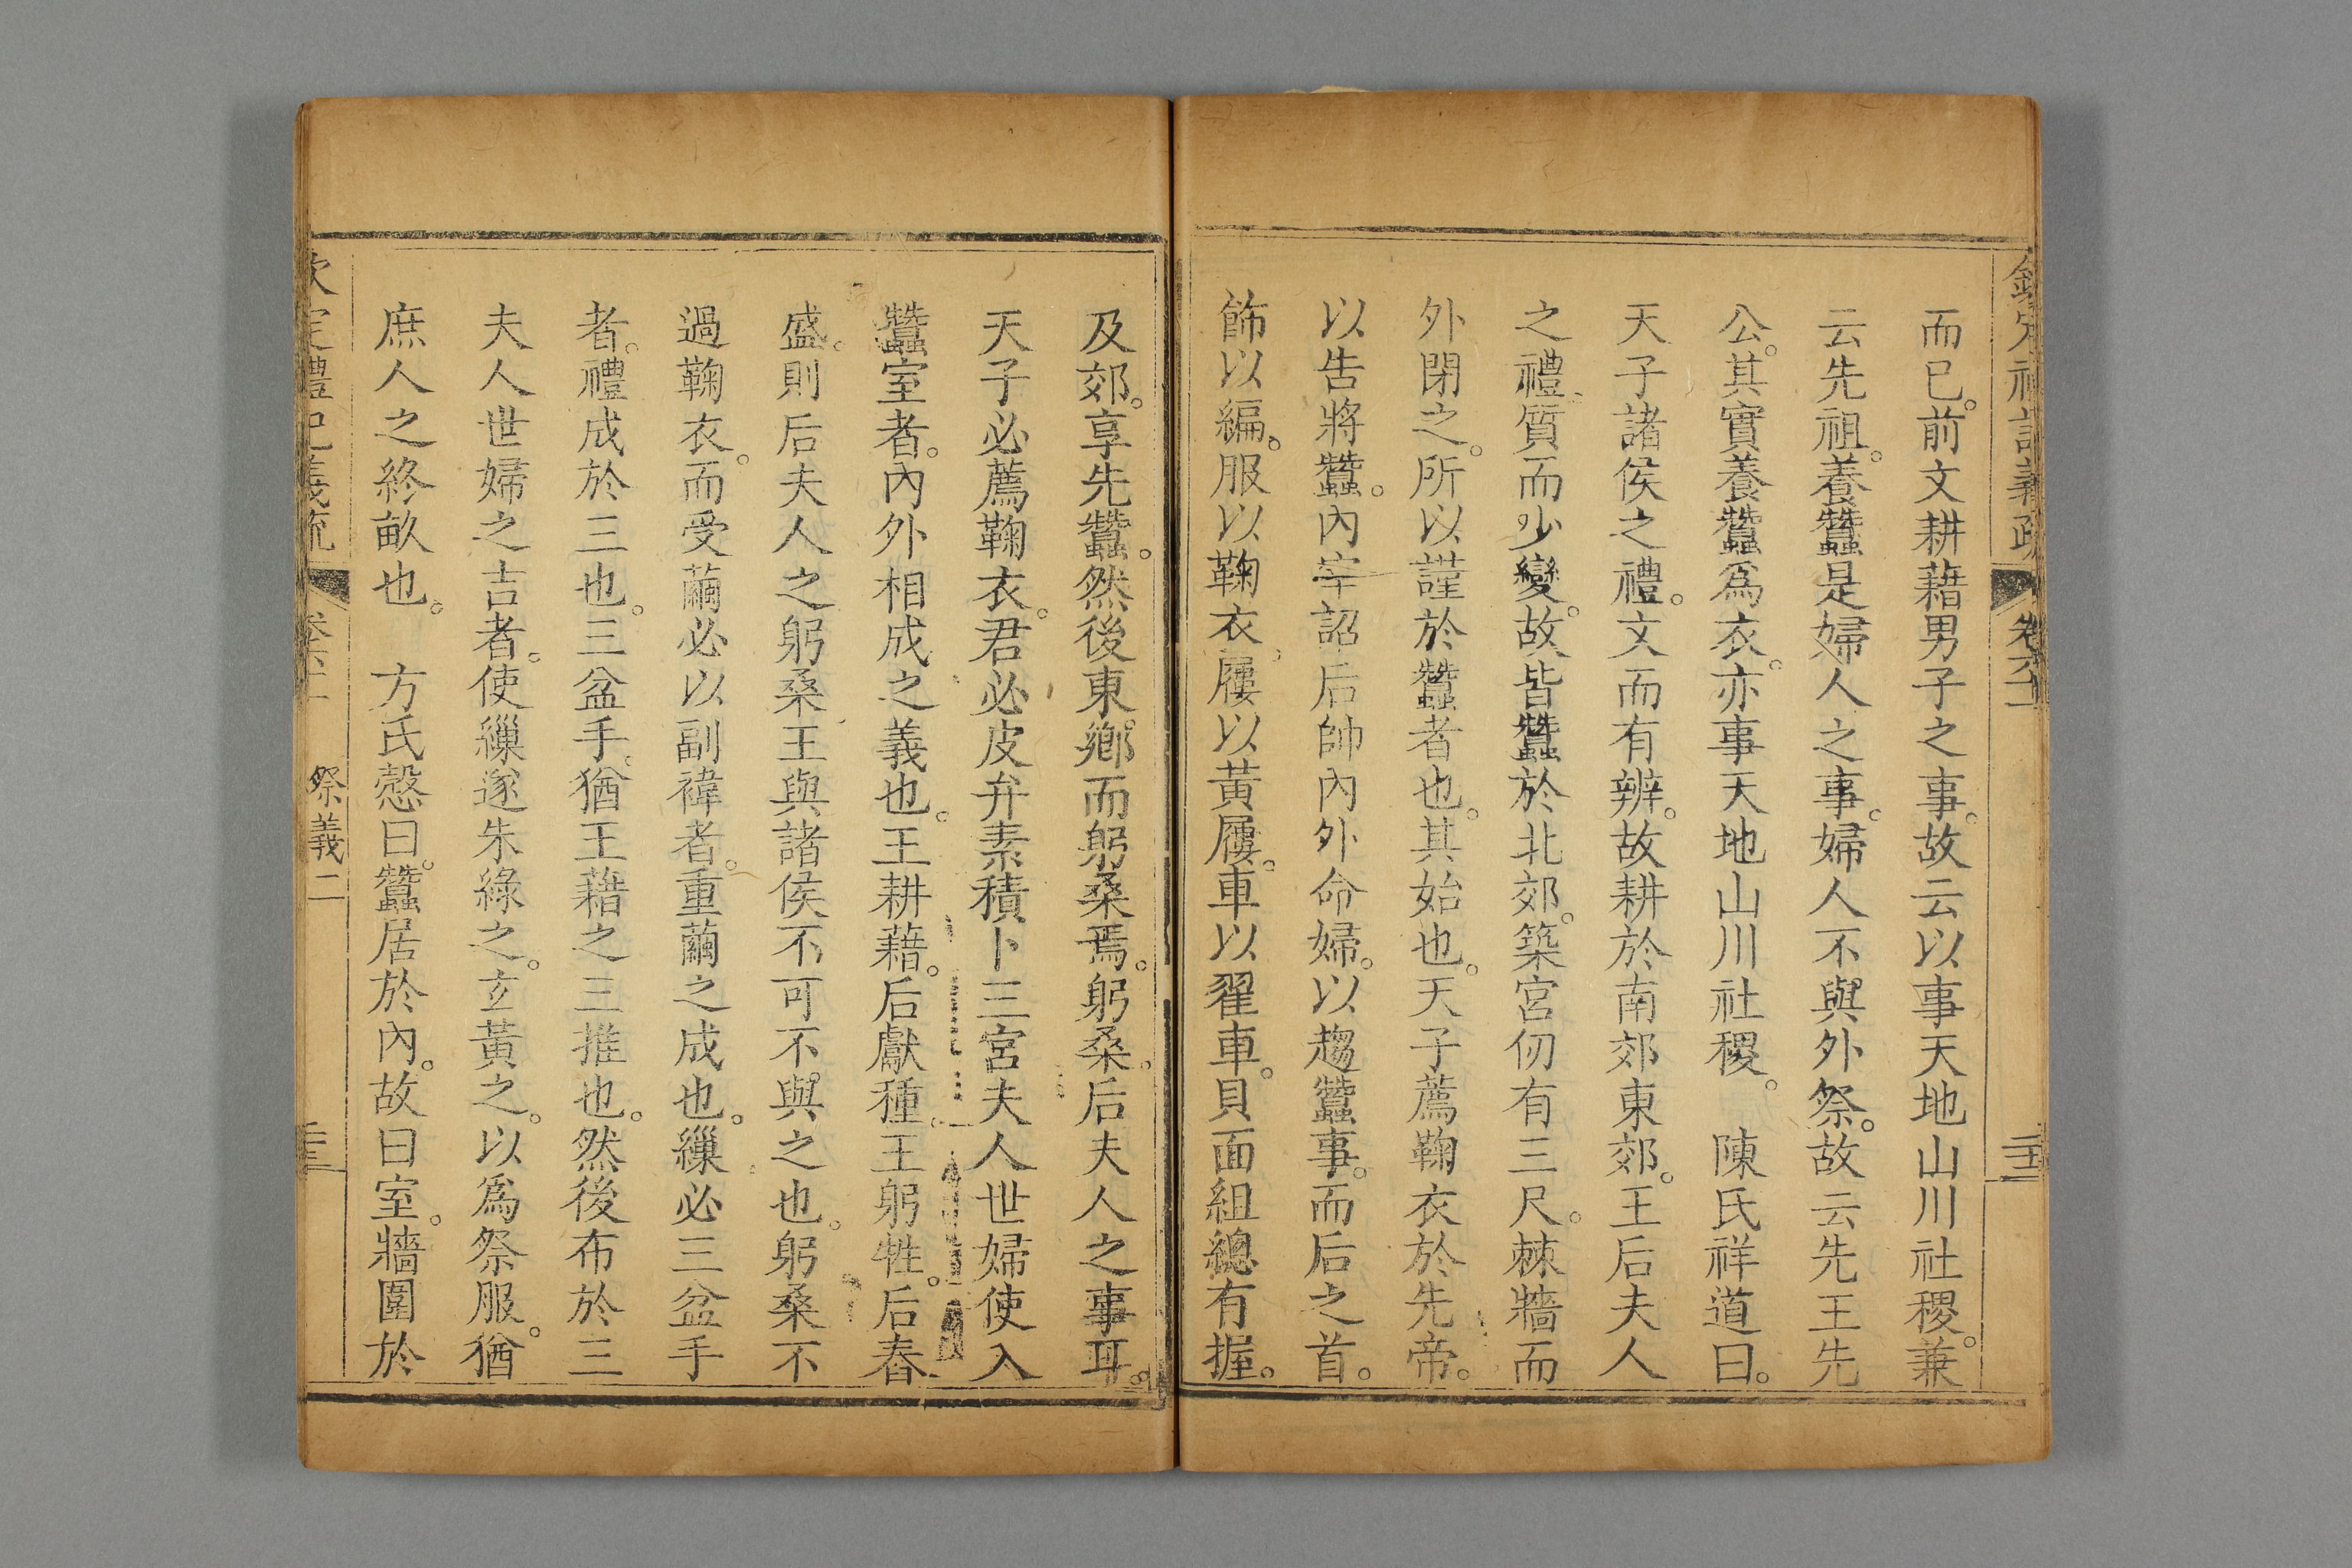 而已。前文耕藉男子之事。故云以事天地山川社稷。兼
云先祖。養蠶是婦人之事。婦人不與外祭。故云先王先
公。其實養蠶爲衣。亦事天地山川社稷。　陳氏祥道曰。
天子諸侯之禮。文而有辨。故耕於南郊東郊。王后夫人
之禮。質而少變。故皆蠶於北郊。築宮仞有三尺。棘牆而
外閉之。所以謹於蠶者也。其始也。天子薦鞠衣於先帝。
以告將蠶。內宰詔后帥內外命婦。以趨蠶事。而后之首。
飾以編。服以鞠衣。屨以黃屨。車以翟車。貝面組總有握。
及郊。享先蠶。然後東鄉。而躬桑焉。躬桑。后夫人之事耳。
天子必薦鞠衣。君必皮弁素積卜三宮夫人世婦使入
蠶室者。內外相成之義也。王耕藉。后獻種。王躬牲。后舂
盛。則后夫人之躬桑王與諸侯不可不與之也。躬桑不
過鞠衣。而受繭必以副褘者。重繭之成也。繅必三盆手
者。禮成於三也。三盆手。猶王藉之三推也。然後布於三
夫人世婦之吉者。使繅遂朱綠之。玄黃之。以爲祭服。猶
庶人之終畝也。　方氏慤曰。蠶居於內。故曰室。牆圍於
欽定禮記義疏　卷六十　祭義二